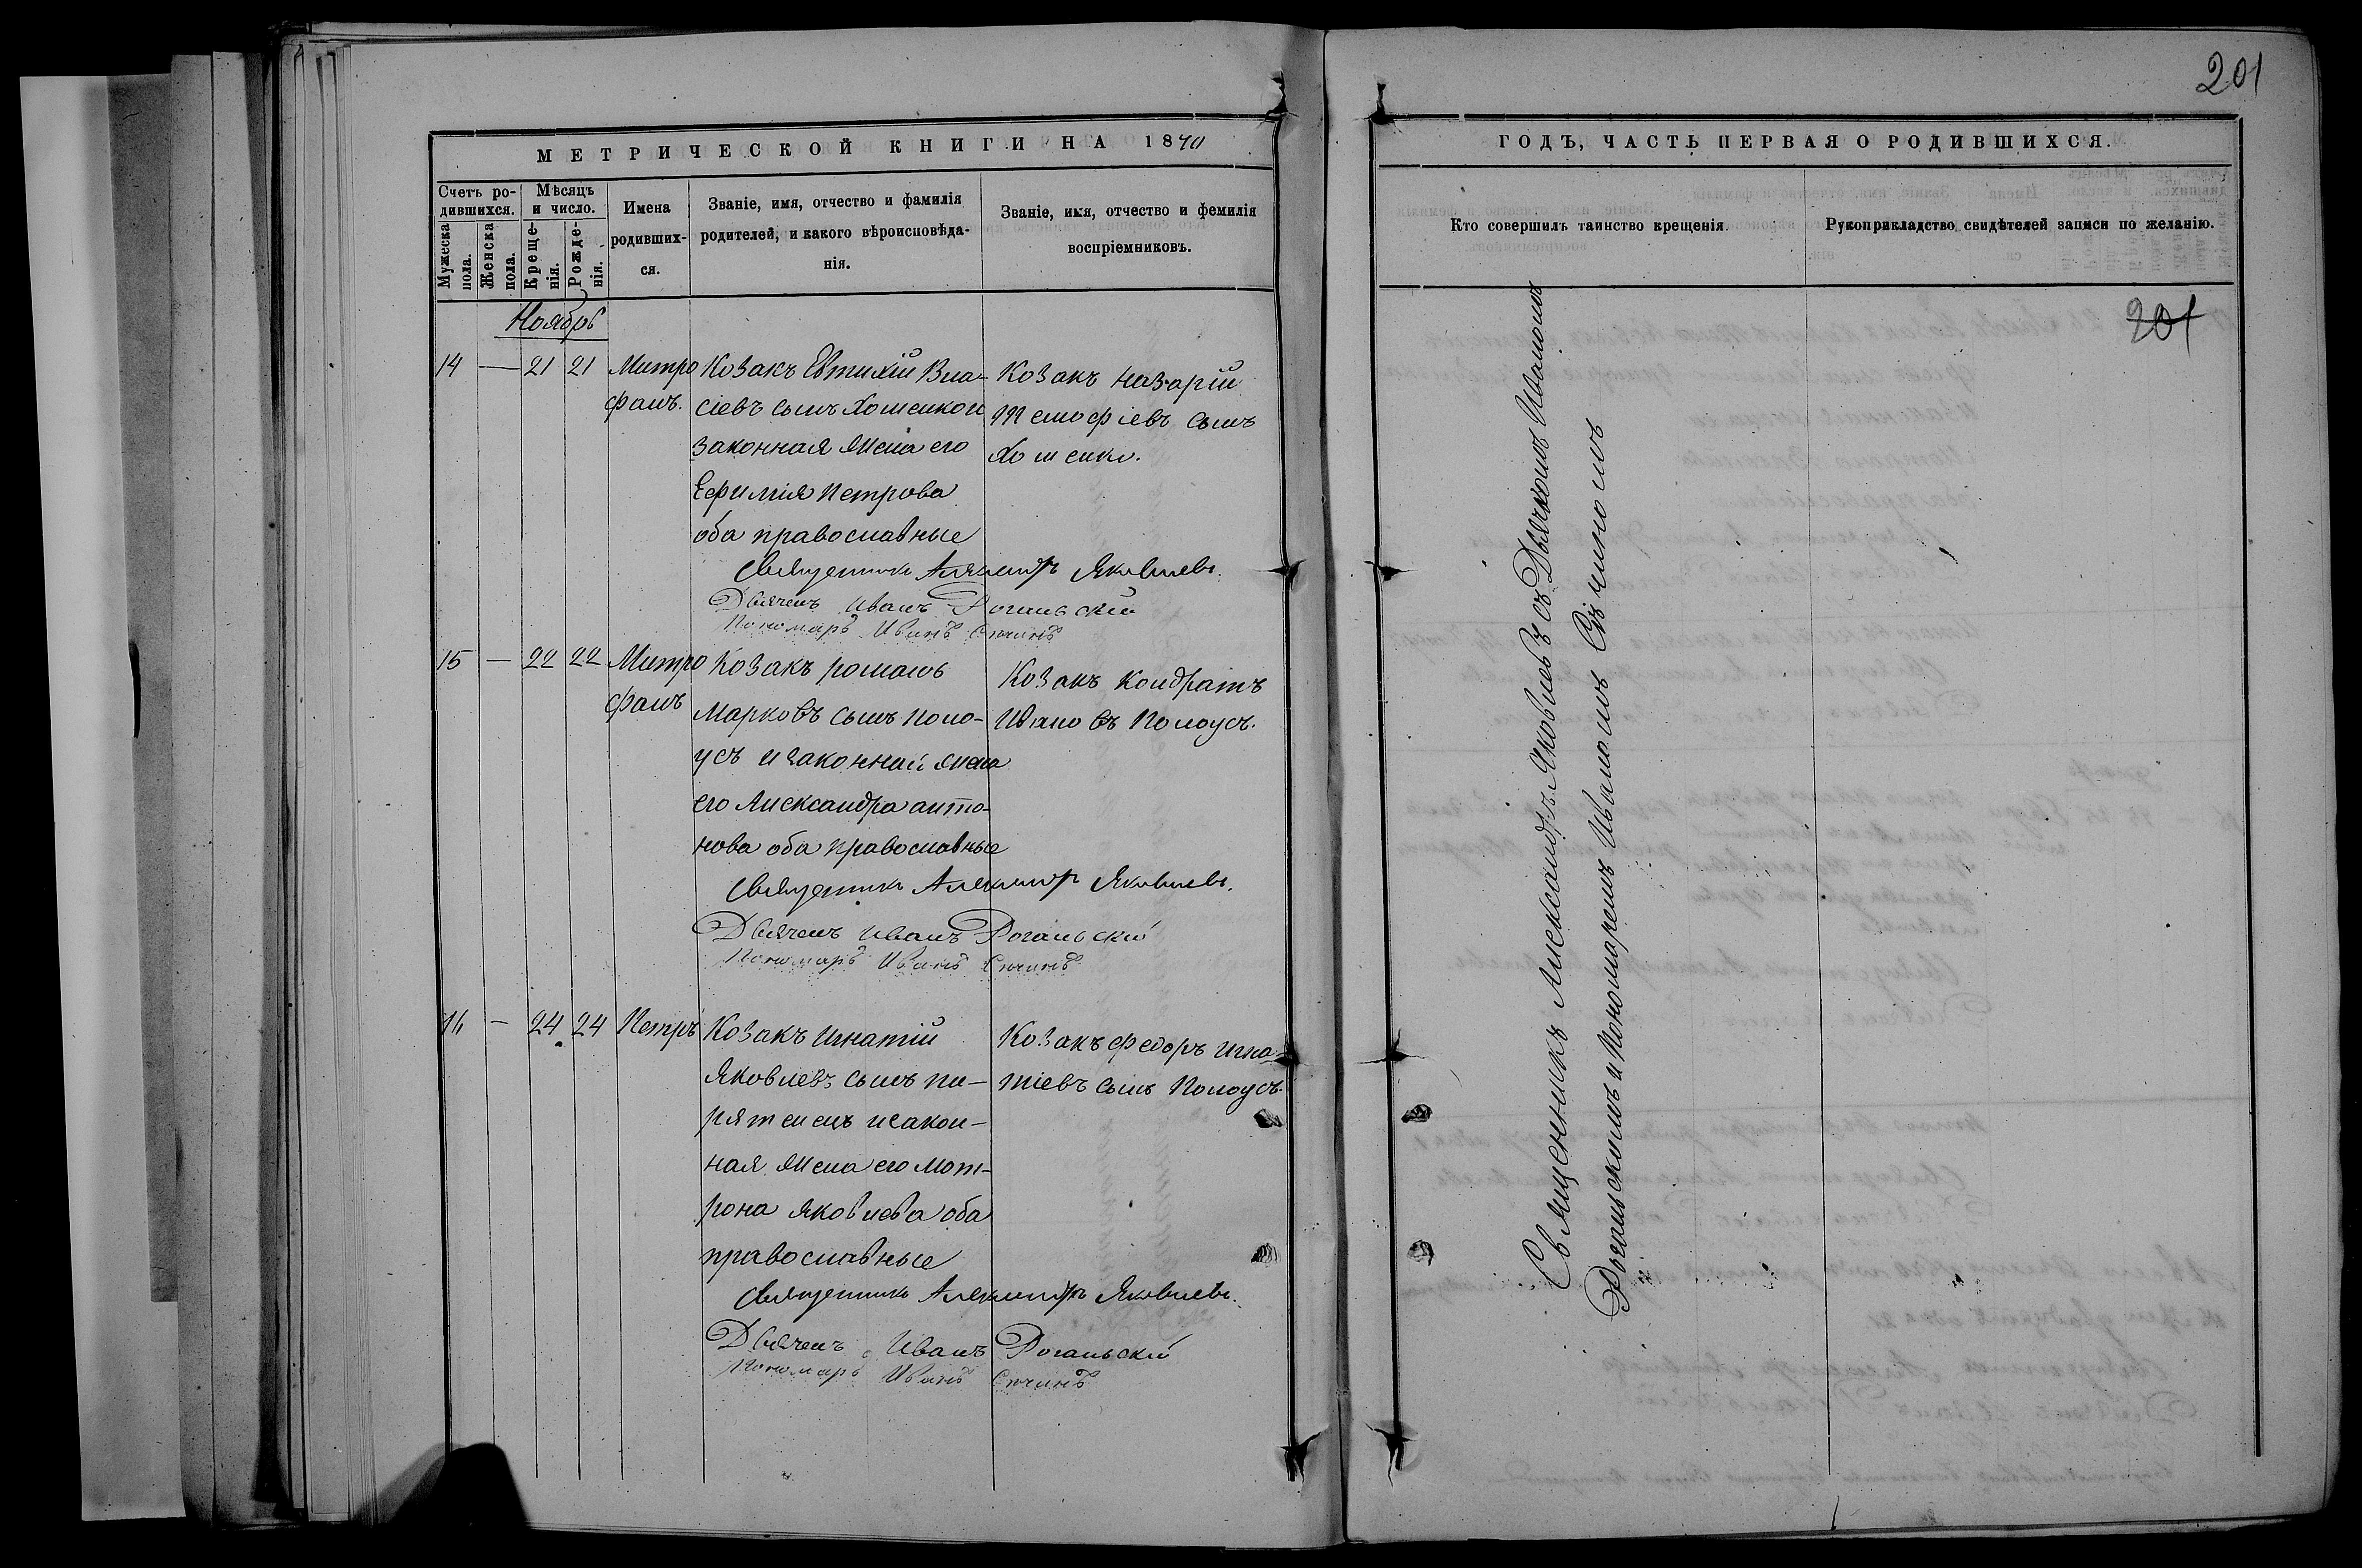 201
МЕТРИЧЕСКОЙ КНИГИ НА 1870
ГОДЪ, ЧАСТЬ ПЕРВАЯ О РОДИВШИХСЯ.
Счетъ ро-
дившихся.
Мужеска
пола.
Женска
пола.
Мѣсяцъ
и число.
Креще-
нія.
Рожде-
нія.
Имена
родивших-
ся.
Званіе, имя, отчество и фамилія
родителей, и какого вѣроисповѣда-
нія.
Званіе, имя, отчество и фемилія
воспріемниковъ.
Кто совершилъ таинство крещенія.
Рукоприкладство свидѣтелей записи по желанію.
201
Ноябрь
14 — 21 21
Митро
фанъ.
Козакъ Евтихій Вла-
сіевъ сынъ Хоменко и
законная жена его
Ефимія Петрова
оба православные
Козакъ Назарій
Тимофіевъ сынъ
Хоменко.
Священникъ Александръ Яковлевъ.
Дьячекъ Иванъ Рогальскій
Пономарь Иванъ Сѣчинъ
15 — 22 22
Митро
фанъ
Козакъ Романъ
Марковъ сынъ Поло-
усъ и законная жена
его Александра Анто-
нова оба православные
Козакъ Кондратъ
Ивановъ Полоусъ.
Священникъ Александръ Яковлевъ.
Дьячекъ Иванъ Рогальскій
Пономарь Иванъ Сѣчинъ
16 — 24 24
Петръ
Козакъ Игнатій
Яковлевъ сынъ Пи-
рятенецъ и закон-
ная жена его Мот-
рона Яковлева оба
православные
Козакъ Федоръ Игна-
тіевъ сынъ Полоусъ.
Священникъ Александръ Яковлевъ.
Дьячекъ Иванъ Рогальскій
Пономарь Иванъ Сѣчинъ
Священникъ Александръ Яковлевъ съ Дьячкомъ Иваномъ
Рогальскимъ и Пономаремъ Иваномъ Сѣчиномъ